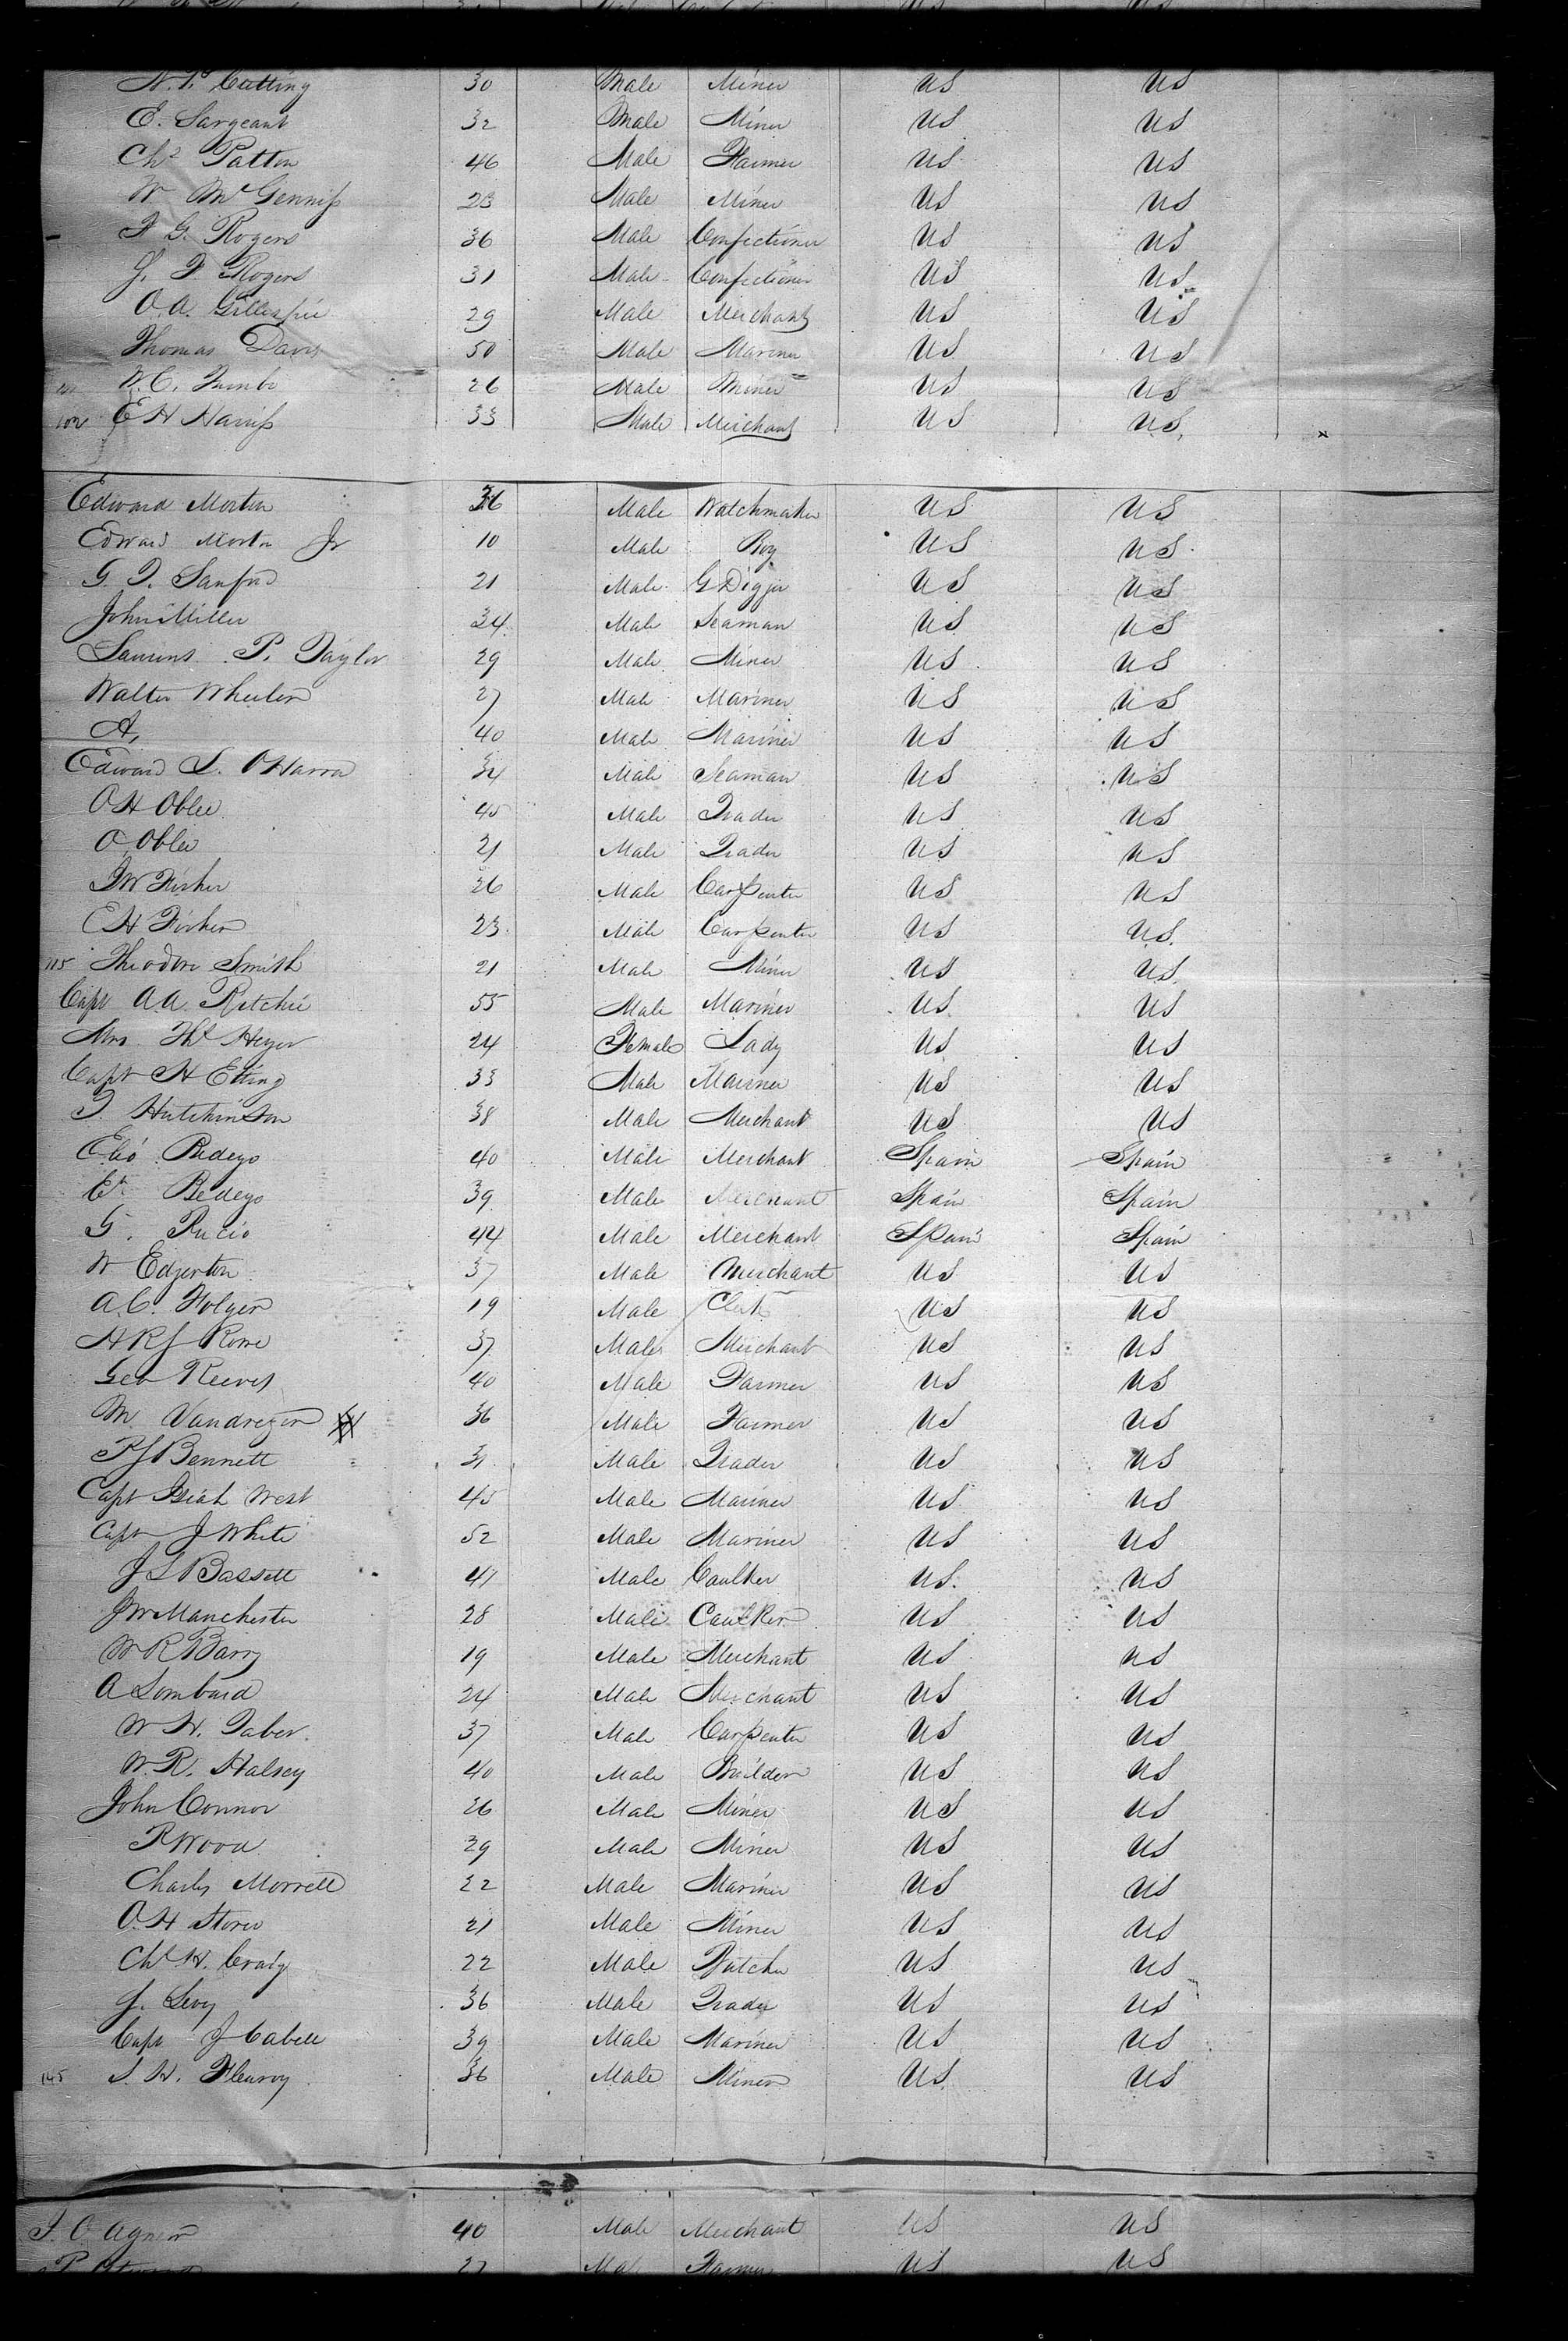 N. P. Cutting 30 Male Miner US US
E. Sargeant 32 Male Miner US US
Chs Patten 46 Male Farmer US US
W McGenniss 23 Male Miner US US
F G. Rogers 36 Male Confectioner US US
J. F Rogers 31 Male Confectioner US US
O. A. Gillespie 29 Male Merchant US US
Thomas Davis 50 Male Mariner US US
W. C. 26 Male Miner US US
102 E H Harriss 33 Male Merchant US US
Edward Morton 36 Male Watchmaker US US
Edward Morton Jr 10 Male Boy US US
G. T. Sanford 21 Male G Digger US US
John Miller 34 Male Seaman US US
Laurens P. Taylor 29 Male Miner US US
Walter Wheeler 27 Male Mariner US US
A, 40 Male Mariner US US
Edward L. OHarra 34 Male Seaman US US
O H Oblee 45 Male Trader US US
O Oblee 21 Male Trader US US
J W Fisher 26 Male Carpenter US US
E H Fisher 23 Male Carpenter US US
115 Theodore Smith 21 Male Miner US US
Capt A. A. Ritchie 55 Male Mariner US US
Mrs Th Heyer 24 Female Lady US US
Capt H Etting 33 Male Mariner US US
T. Hutchinson 38 Male Merchant US US
Bedeyo 40 Male Merchant Spain Spain
Bedeyo 39 Male Merchant Spain Spain
G. Rucio 44 Male Merchant Spain Spain
W Edgerton 37 Male Merchant US US
A. C. Folger 19 Male Clerk US US
H R J Rowe 37 Male Merchant US US
Geo Reeves 40 Male Farmer US US
M Vandrezer 36 Male Farmer US US
P J Bennett 31 Male Trader US US
Capt Isiah West 45 Male Mariner US US
Capt J White 52 Male Mariner US US
J L Bassett 47 Male Caulker US. US
J W Manchester 28 Male Caulker US US
W R Barry 19 Male Merchant US US
A Lombard 24 Male Merchant US US
W H. Taber. 37 Male Carpenter US US
W. R. Halsey 40 Male Builder US US
John Connor 26 Male Miner US US
R Wood 29 Male Miner US US
Charles Morrell 22 Male Mariner US US
O. H Storer 21 Male Miner US US
Chs H. Craig 22 Male Butcher US US
J. Levy 36 Male Trader US US
Capt J Cabell 39 Male Mariner US US
145 S. H. Fleuroy 36 Male Miner US US
J. O. Agnew 40 Male Merchant US US
27 Male Farmer US US